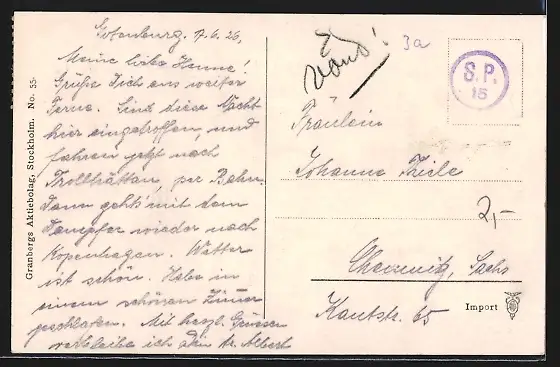 Gotenburg. 17.6.26.
Meine liebe Hanne!
Grüße Dich aus weiter
Ferne. Sind diese Nacht
hier eingetroffen und
fahren jetzt nach
Trollhättan, per Bahn.
Dann geht's mit dem
Dampfer wieder nach
Kopenhagen. Wetter
ist schön. Habe in
einem schönen Zimmer
geschlafen. Mit herzl. Grüssen
verbleibe ich Dein Albert
Granbergs Aktiebolag, Stockholm. No. 55
3a
S. P.
15
Fräulein
Johanna Thiele
2,-
Chemnitz, Sachs
Import
Kantstr. 65